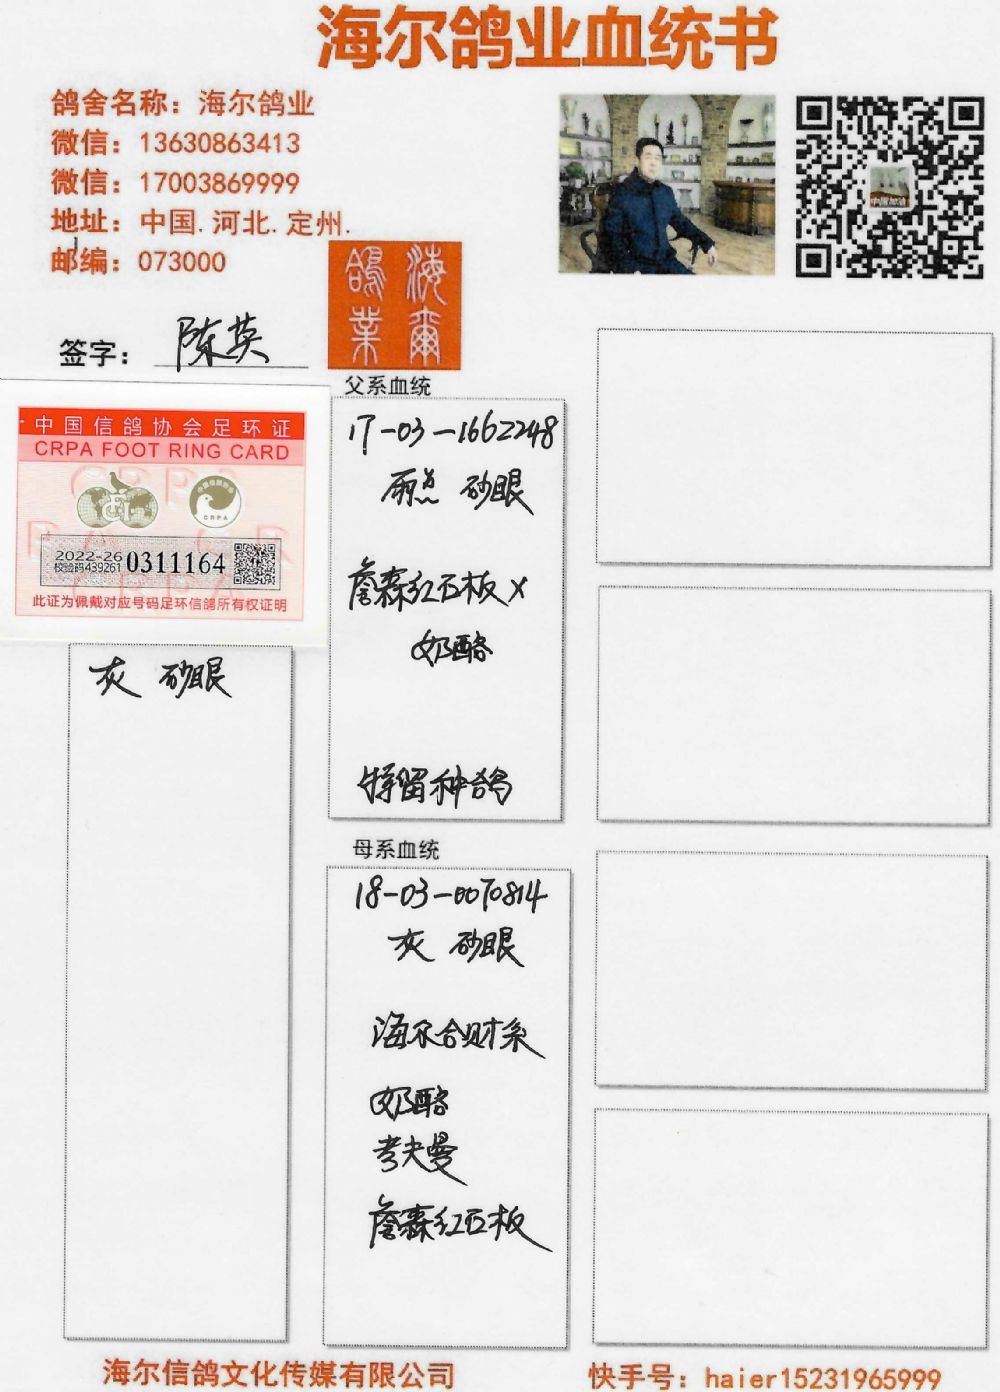 海尔鸽业血统书
鸽舍名称：海尔鸽业
微信：13630863413
微信：17003869999
地址：中国.河北.定州.
邮编：073000
中国加油
海尔鸽业
签字：陈英
中国信鸽协会足环证
CRPA FOOT RING CARD
CRPA
2022-26
校验码439261
0311164
此证为佩戴对应号码足环信鸽所有权证明
灰 砂眼
父系血统
17-03-1662248
雨点 砂眼
詹森红石板×
奶酪
特留种鸽
母系血统
18-03-0070814
灰 砂眼
海尔合财系
奶酪
考夫曼
詹森红石板
海尔信鸽文化传媒有限公司
快手号：haier15231965999